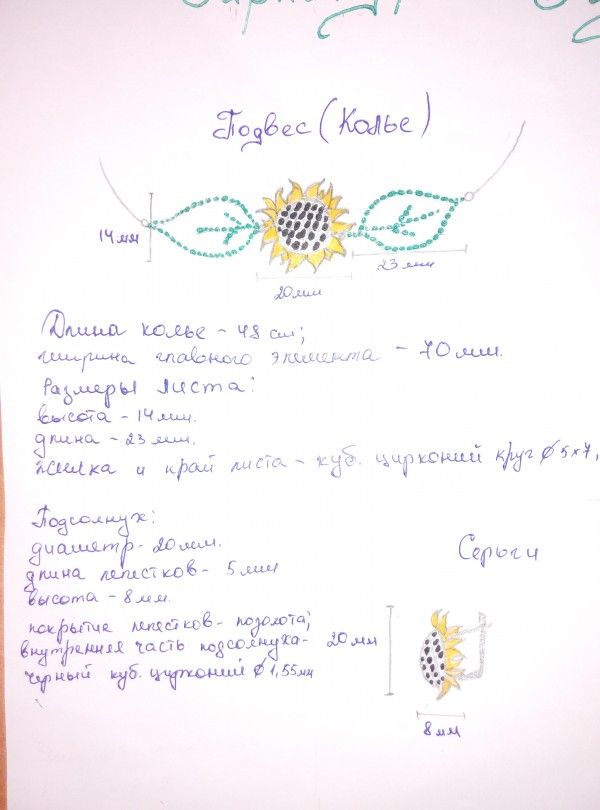 Подвес (Колье)
14 мм
23 мм
20 мм
Длина колье - 48 см;
ширина главного элемента - 70 мм.
Размеры листа:
высота - 14 мм.
длина - 23 мм.
жилка и край листа - куб. цирконий круг ø 5х7,
Подсолнух:
диаметр - 20 мм.
длина лепестков - 5 мм
высота - 8 мм.
покрытие лепестков - позолота;
внутренняя часть подсолнуха -
черный куб. цирконий ø 1,55 мм
Серьги
20 мм
8 мм